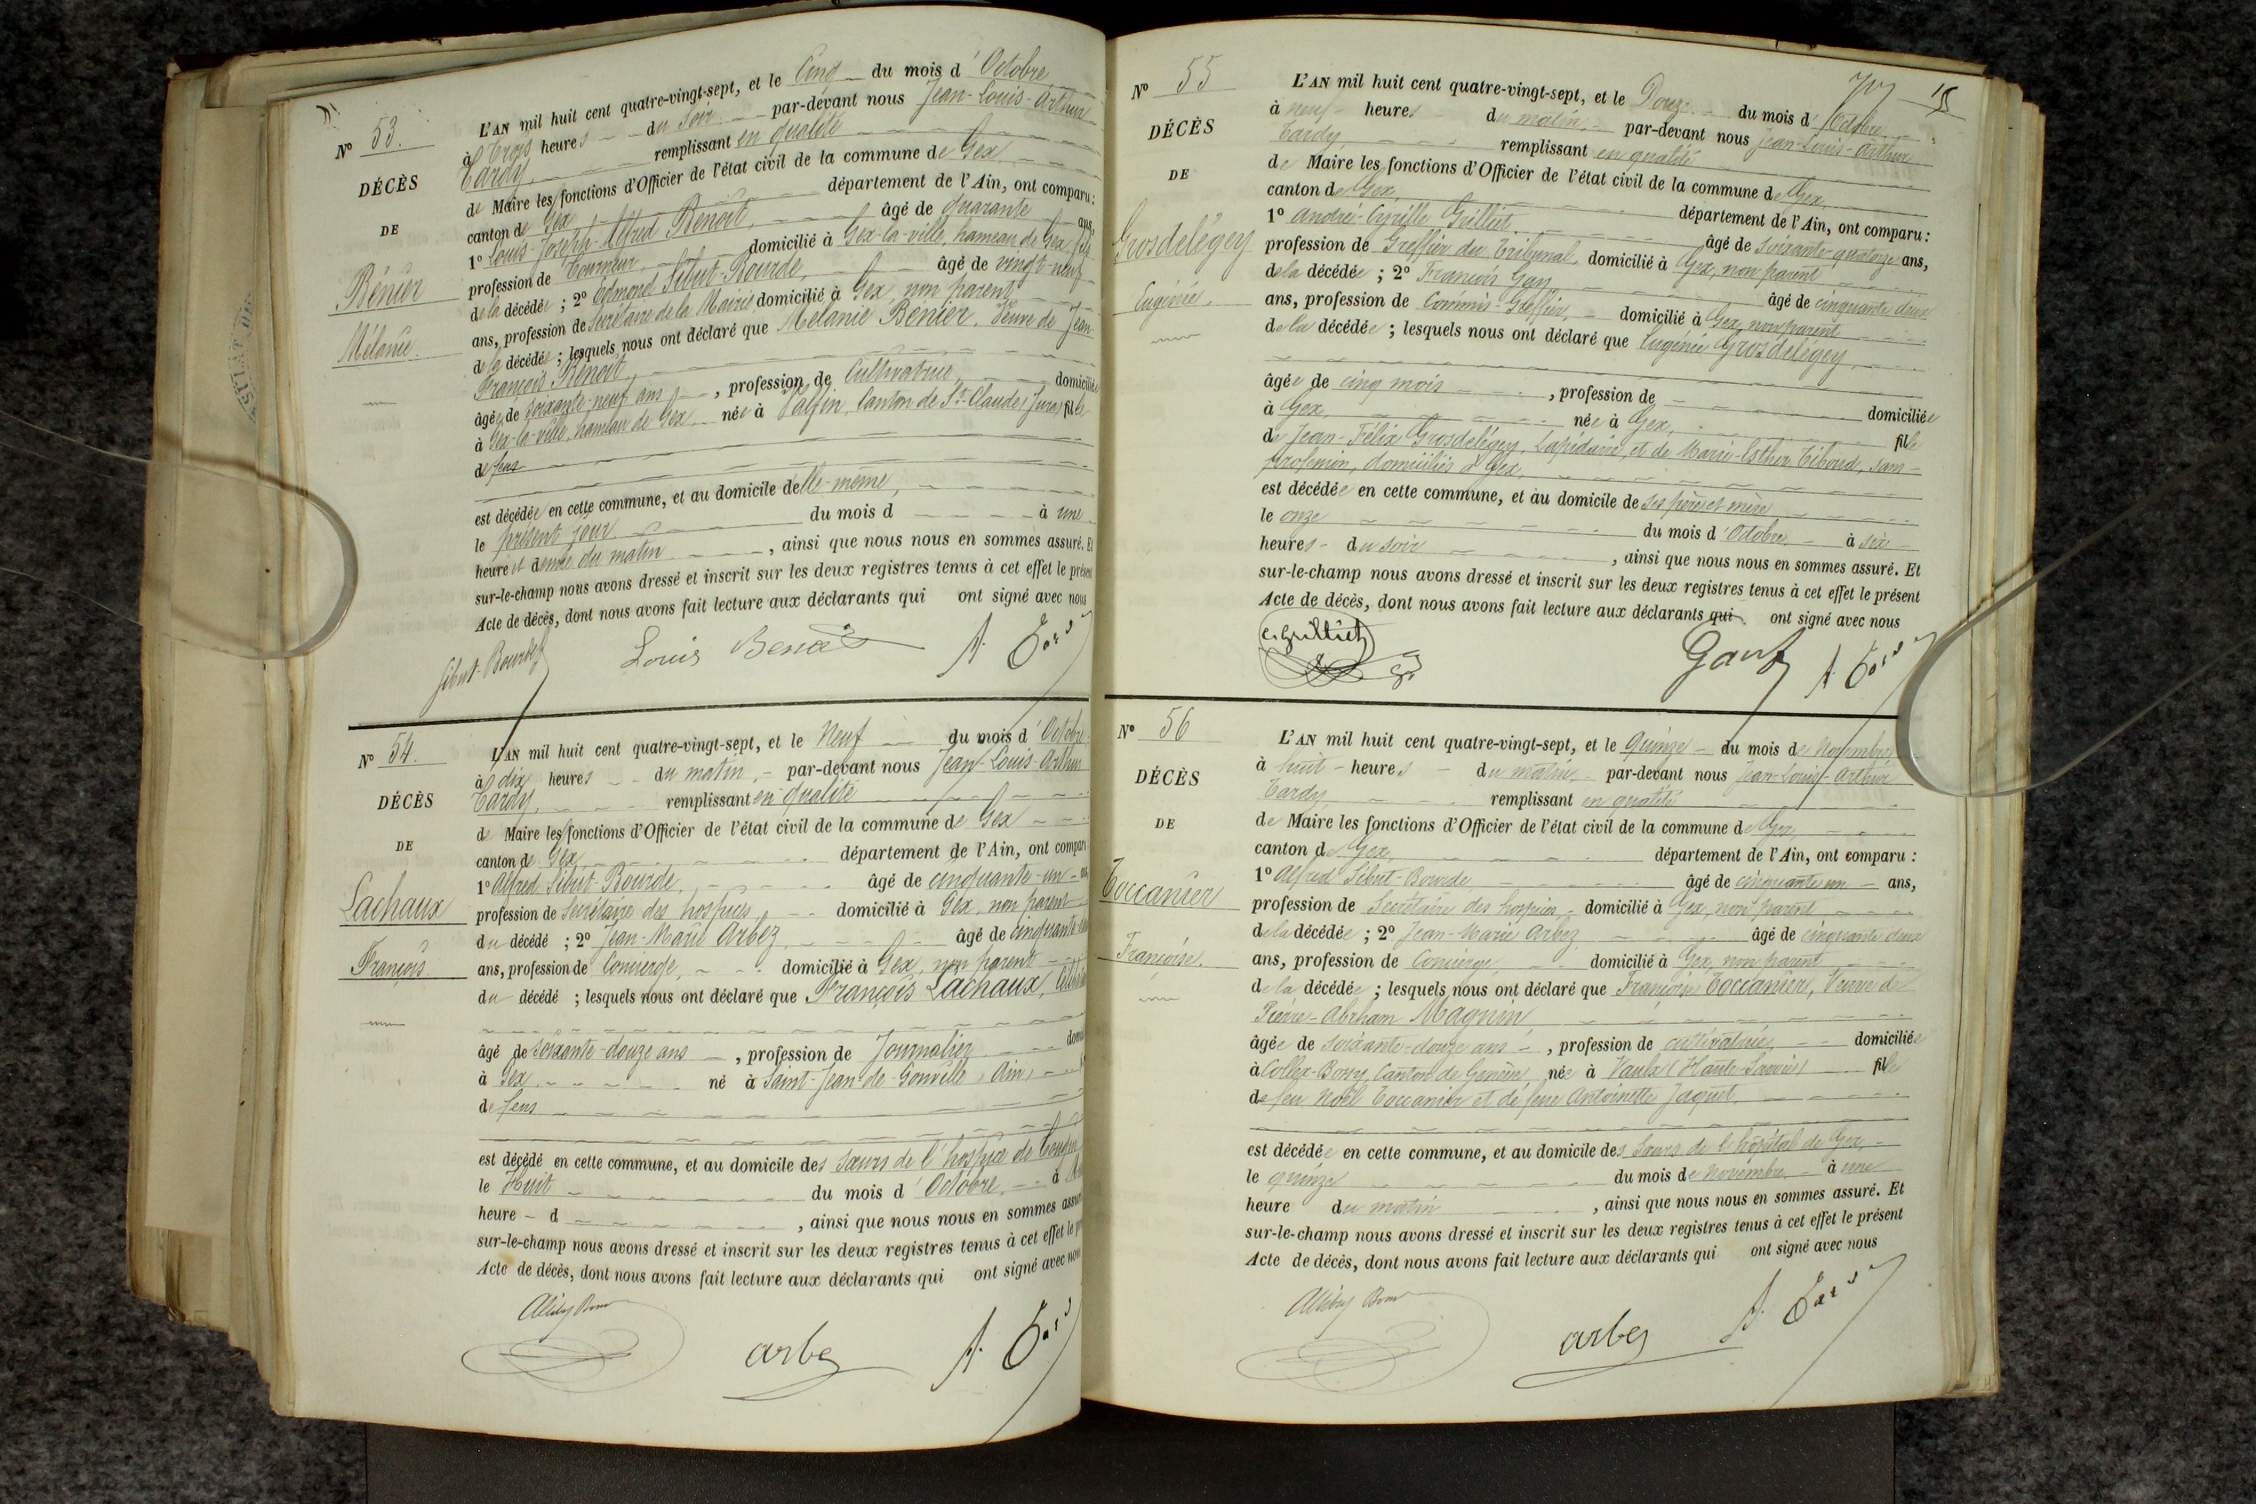 N° 53.
DÉCÈS
DE
Bénier
Mélanie.
L'AN mil huit cent quatre-vingt-sept, et le Cinq du mois d'Octobre
à Trois heures du Soir par-devant nous Jean-Louis-Arthur
Tardy, remplissant en qualité
de Maire les fonctions d'Officier de l'état civil de la commune de Gex
canton de Gex département de l'Ain, ont comparu :
1° Louis-Joseph-Alfred Benoit, âgé de quarante ans,
profession de Tourneur, domicilié à Gex-la-ville, hameau de Gex, fils
de la décédée ; 2° Edmond Sibut-Bourde, âgé de vingt-neuf
ans, profession de Secrétaire de la Mairie, domicilié à Gex, non parent
de la décédée ; lesquels nous ont déclaré que Mélanie Bénier, Veuve de Jean-
François Benoit,
âgée de soixante-neuf ans, profession de Cultivatrice, domiciliée
à Gex-la-ville, hameau de Gex née à Valfin, Canton de St-Claude (Jura) fille
de feus
est décédée en cette commune, et au domicile d'elle-même,
le présent jour du mois d à une
heure et demie du matin, ainsi que nous nous en sommes assuré. Et
sur-le-champ nous avons dressé et inscrit sur les deux registres tenus à cet effet le présent
Acte de décès, dont nous avons fait lecture aux déclarants qui ont signé avec nous
Sibut-Bourde Louis Benoit A. Tardy
N° 54.
DÉCÈS
DE
Lachaux
François
L'AN mil huit cent quatre-vingt-sept, et le Neuf du mois d'Octobre
à dix heures du matin, par-devant nous Jean-Louis-Arthur
Tardy, remplissant en qualité
de Maire les fonctions d'Officier de l'état civil de la commune de Gex
canton de Gex département de l'Ain, ont comparu
1° Alfred Sibut-Bourde, âgé de cinquante-un ans
profession de Secrétaire des hospices, domicilié à Gex, non parent
du décédé ; 2° Jean-Marie Arbez, âgé de cinquante-
ans, profession de Concierge, domicilié à Gex, non parent
du décédé ; lesquels nous ont déclaré que François Lachaux,
âgé de soixante-douze ans, profession de Journalier
à Gex né à Saint-Jean-de-Gonville (Ain)
de feus
est décédé en cette commune, et au domicile des sœurs de l'hospice de
le Huit du mois d'Octobre, à
heure d , ainsi que nous nous en sommes assuré
sur-le-champ nous avons dressé et inscrit sur les deux registres tenus à cet effet le
Acte de décès, dont nous avons fait lecture aux déclarants qui ont signé avec nous
arbez A. Tardy
N° 55
DÉCÈS
DE
Grosdelégey
Eugénie.
L'AN mil huit cent quatre-vingt-sept, et le Douze du mois d'Octobre
à neuf heures du matin, par-devant nous Jean-Louis-Arthur
Tardy remplissant en qualité
de Maire les fonctions d'Officier de l'état civil de la commune de Gex,
canton de Gex département de l'Ain, ont comparu :
1° André-Cyrille Grilliet âgé de soixante-quatorze ans,
profession de Greffier du Tribunal, domicilié à Gex, non parent
de la décédée ; 2° François Gay âgé de cinquante deux
ans, profession de Commis-Greffier, domicilié à Gex, non parent
de la décédée ; lesquels nous ont déclaré que Eugénie Grosdelégey,
âgée de cinq mois, profession de domiciliée
à Gex, née à Gex, fille
de Jean-Félix Grosdelégey, Lapidaire, et de Marie-Esther Tiboud, sans
profession, domiciliés à Gex,
est décédée en cette commune, et au domicile de ses père et mère
le onze du mois d'Octobre à six
heures du soir, ainsi que nous nous en sommes assuré. Et
sur-le-champ nous avons dressé et inscrit sur les deux registres tenus à cet effet le présent
Acte de décès, dont nous avons fait lecture aux déclarants qui ont signé avec nous
C. Grilliet A. Tardy
N° 56
DÉCÈS
DE
Toccanier
Françoise.
L'AN mil huit cent quatre-vingt-sept, et le Quinze du mois de Novembre,
à huit heures du matin par-devant nous Jean-Louis-Arthur
Tardy remplissant en qualité
de Maire les fonctions d'Officier de l'état civil de la commune de Gex
canton de Gex, département de l'Ain, ont comparu :
1° Alfred Sibut-Bourde âgé de cinquante un ans,
profession de Secrétaire des hospices, domicilié à Gex, non parent
de la décédée ; 2° Jean-Marie Arbez âgé de cinquante deux
ans, profession de Concierge, domicilié à Gex, non parent
de la décédée ; lesquels nous ont déclaré que Françoise Toccanier, Veuve de
Pierre-Abrham Magnin
âgée de soixante-douze ans, profession de cultivatrice domiciliée
à Collex-Bossy, Canton de Genève, née à Vaulx (Haute-Savoie) fille
de feu Noël Toccanier et de feue Antoinette Jaquet,
est décédée en cette commune, et au domicile des Sœurs de l'hôpital de Gex,
le quinze du mois de Novembre à une
heure du matin, ainsi que nous nous en sommes assuré. Et
sur-le-champ nous avons dressé et inscrit sur les deux registres tenus à cet effet le présent
Acte de décès, dont nous avons fait lecture aux déclarants qui ont signé avec nous
arbez A. Tardy